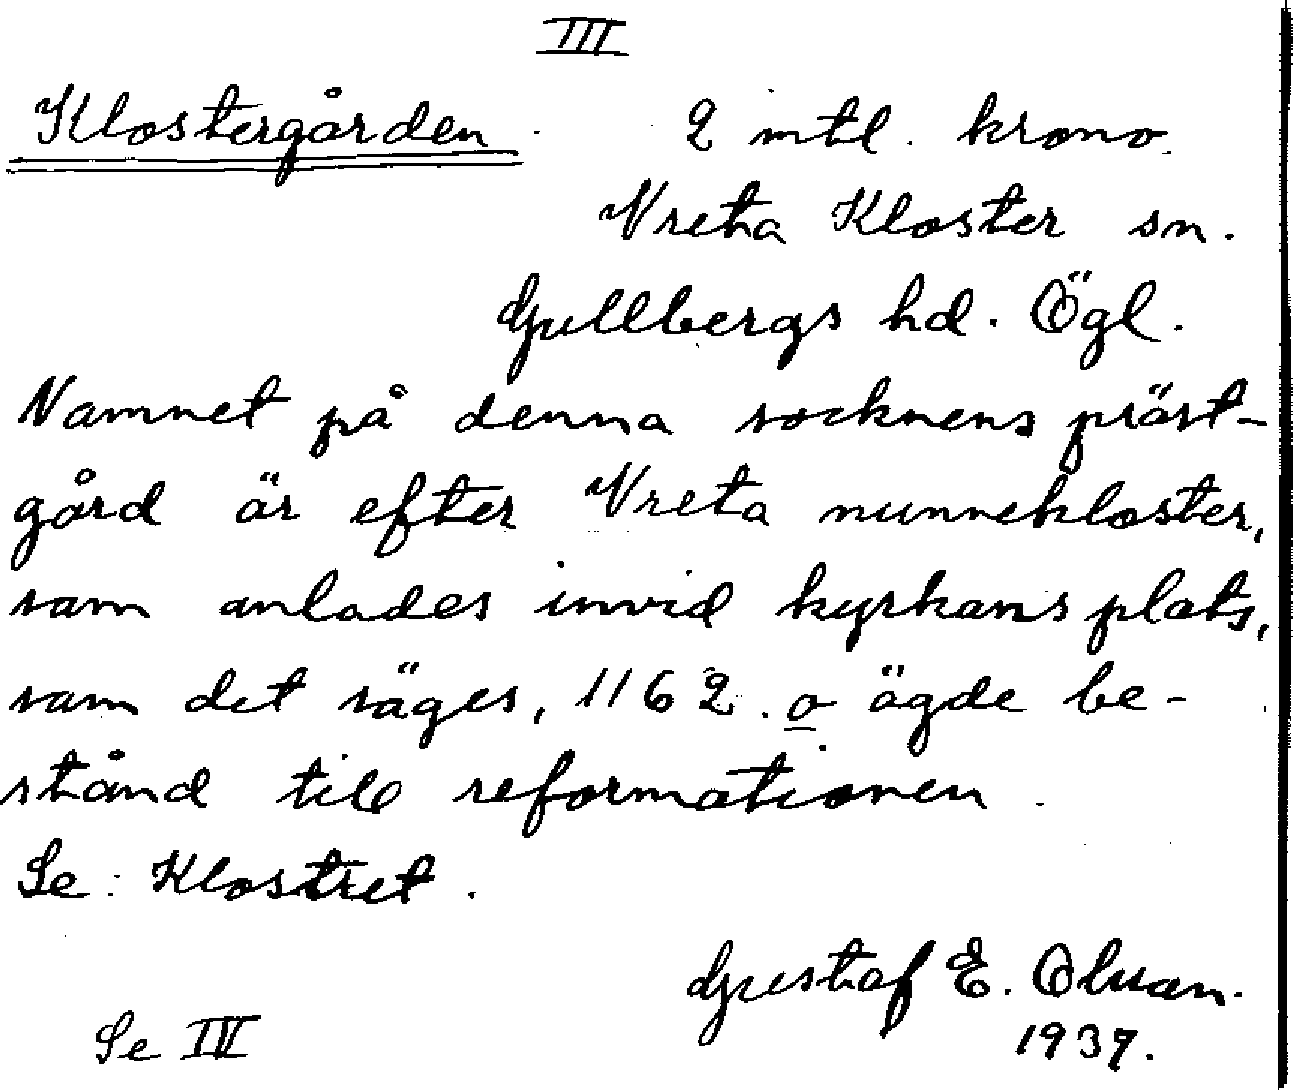 III
Klostergården. 2 mtl. krono.
Vreta Kloster sn.
Gullbergs hd. Ögl.
Namnet på denna socknens präst-
gård är efter Vreta nunnekloster,
som anlades invid kyrkans plats,
som det säges, 1162. o ägde be-
stånd till reformationen.
Se: Klostret.
Gustaf E. Olsson.
1937.
Se IV